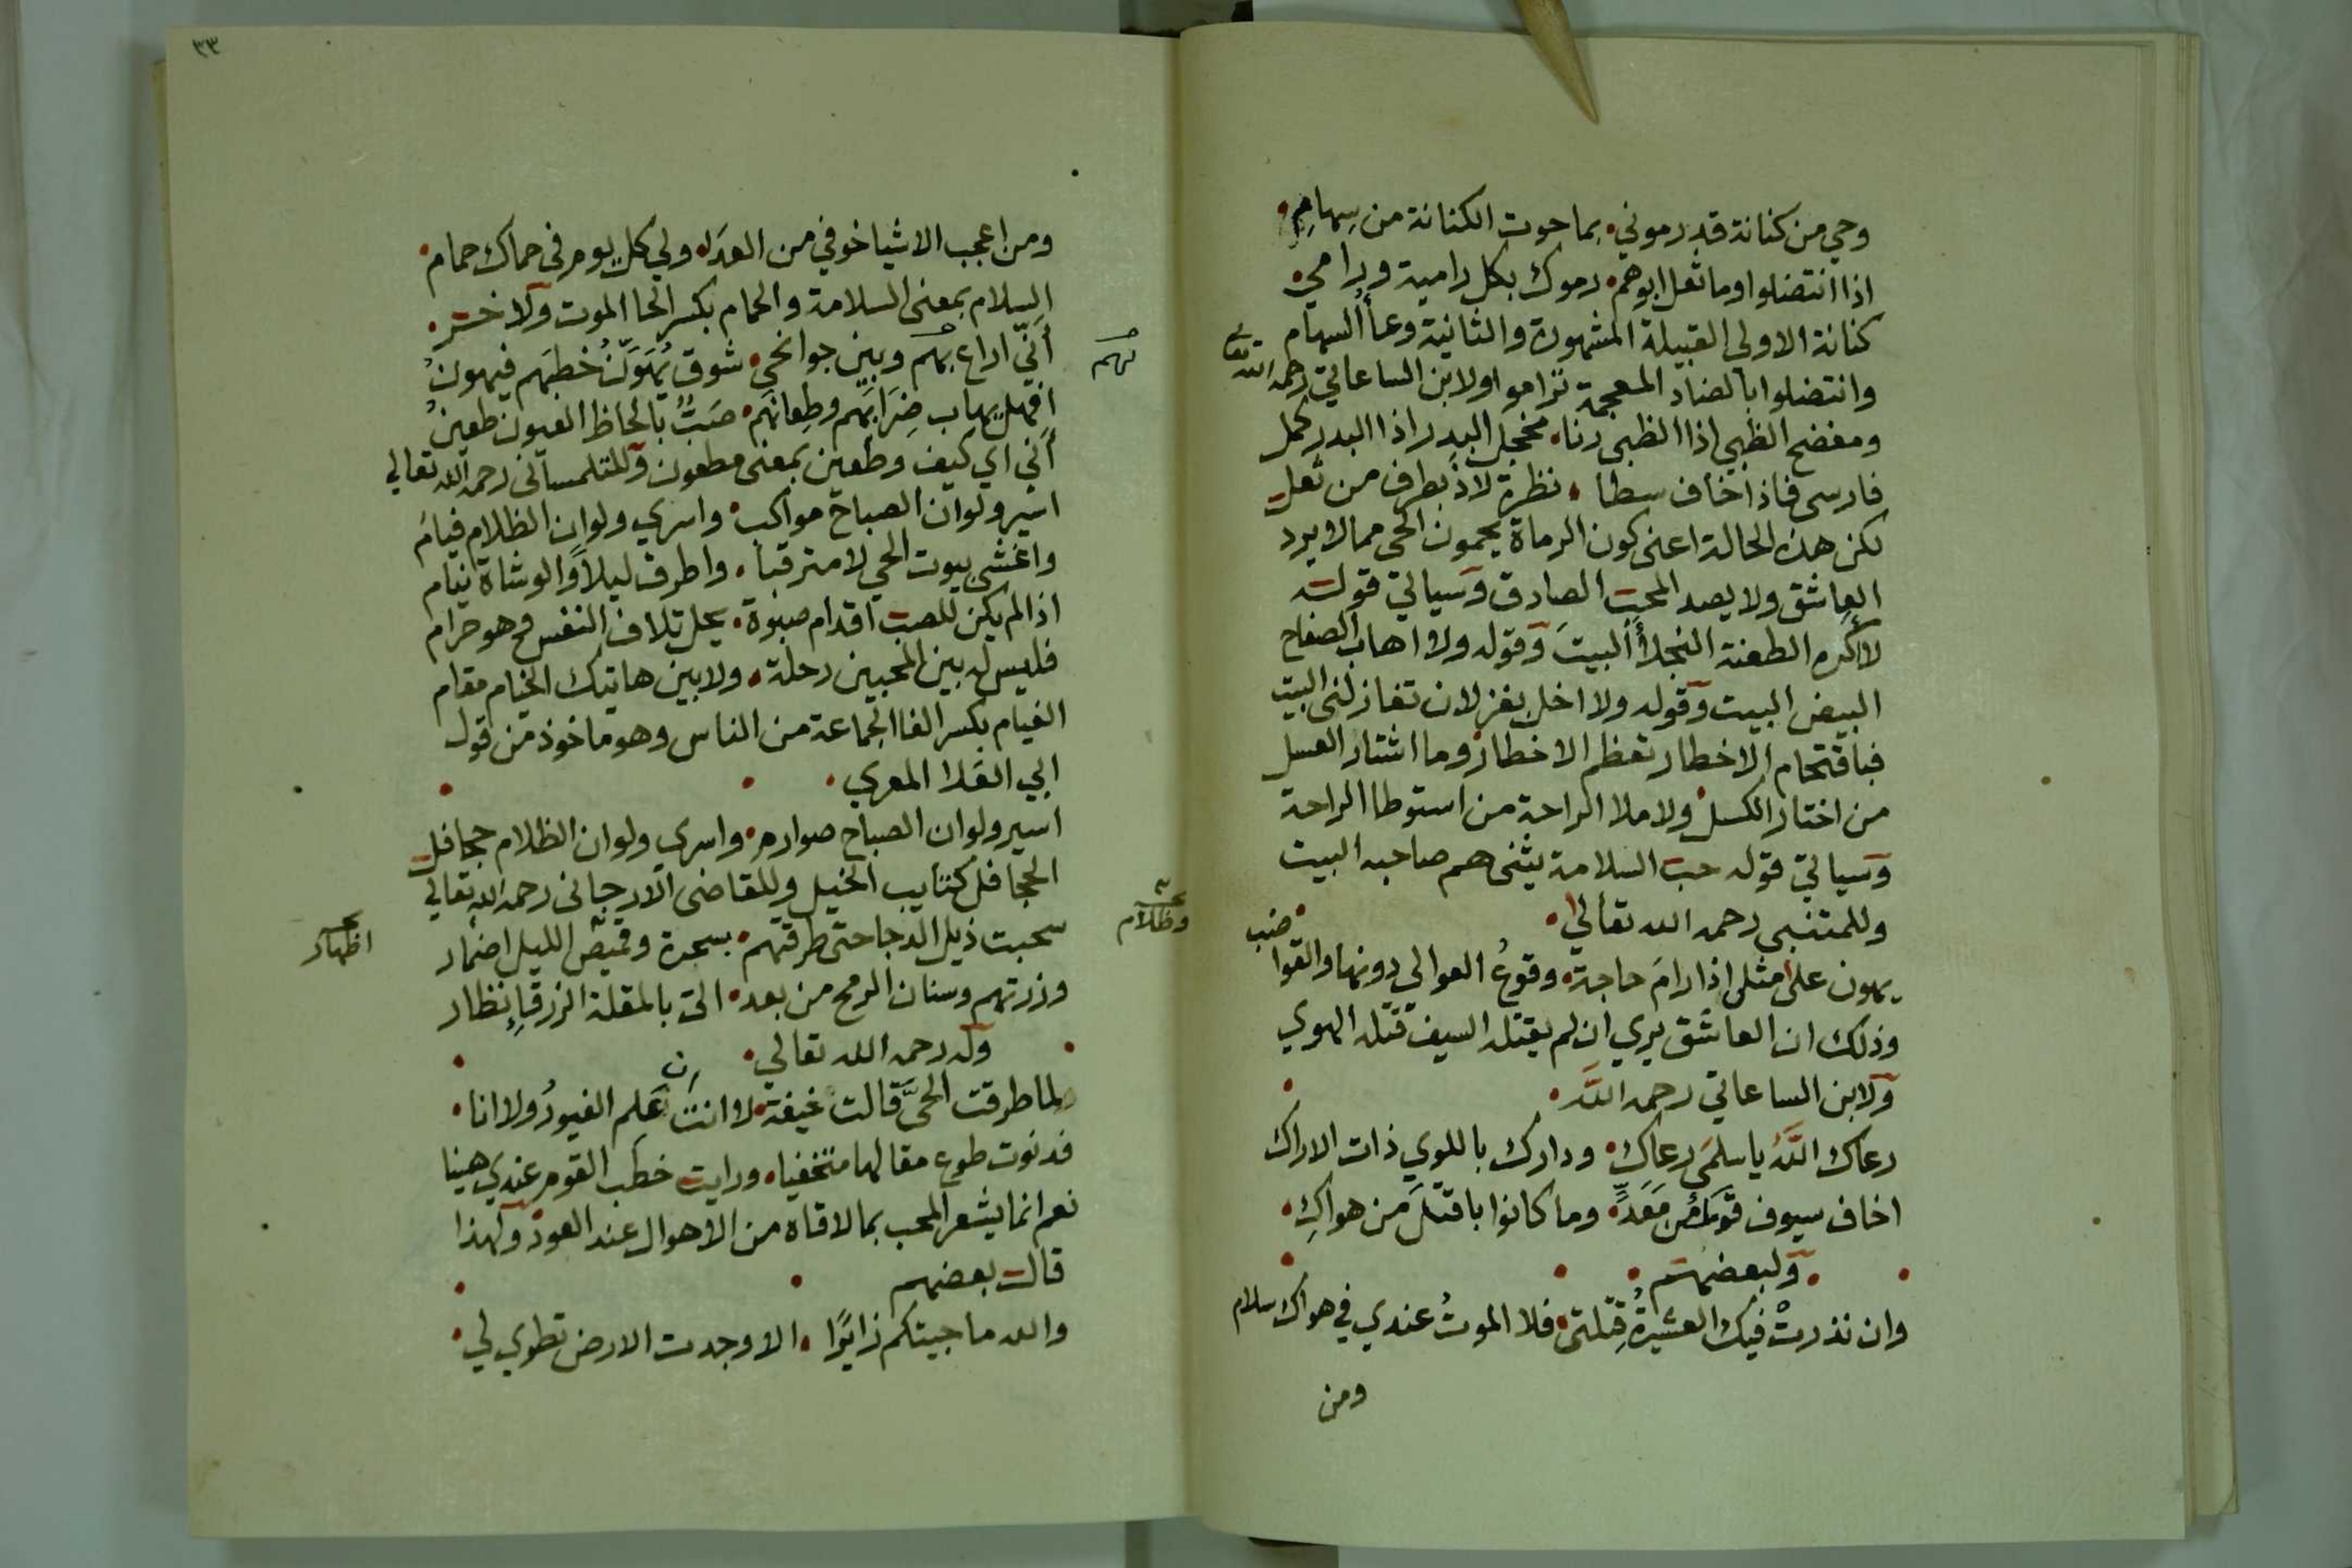 وحي من كنانة قد رموني ۰ بما حوت الكنانة من سِهامِ ۰
اذا انتضلوا وما ثعل ابوهم ۰ رموك بكل رامية ورامي ۰
كنانة الاولى القبيلة المشهورة والثانية وعأ السهام
وانتضلوا بالضاد المعجمة تراموا ولابن الساعاتي رحمه الله تعالى
ومفضح الظبي اذا الظبى رنا ۰ مخجل البدر اذا البدر كمل
فارسى فاذا خاف سطا ۰ نظرة لاذ بطرف من ثعل
لكن هذه الحالة اعنى كون الرماة يحمون الحى مما لا يرد
العاشق ولا يصد المحب الصادق وسياتي قوله
لا اكره الطعنة النجلأ البيت وقوله ولا اهاب الصفاح
البيض البيت وقوله ولا اخل بغزلان تغازلنى البيت
فباقتحام الاخطار تعظم الاخطار وما اشتار العسل
من اختار الكسل ولا ملا الراحة من استوطا الراحة
وسياتي قوله حب السلامة يثنى هم صاحبه البيت
وللمتنبى رحمه الله تعالى ۰
يهون على مثلى اذا رامَ حاجة ۰ وقوعُ العوالي دونها والقواضب
وذلك ان العاشق يري ان لم يقتله السيف قتله الهوي
ولابن الساعاتي رحمه اللَّه ۰
رعاك اللَّهُ يا سلمَى رعاكِ ۰ ودارك باللوي ذات الاراك
اخاف سيوف قومك من مَعَدٍّ ۰ وما كانوا باقتلَ من هواكِ ۰
۰ ولبعضهم ۰
وان نذرتْ فيك العشيرةُ قِتْلتى ۰ فلا الموتُ عندي في هواك سلام
ومن
٣٣
ومن اعجب الاشيا خوفي من العِدَا ۰ ولي كل يوم فى حماك حمام ۰
السلام بمعنى السلامة والحمام بكسر الحا الموت ولاخر ۰
أَنّي اراع بهم وبين جوانحي ۰ شوق يُهَوِّنُ خطبَهم فيهونُ
لهم
افهل يهاب ضِرَابَهم وطِعانَهم ۰ صَبٌّ بالحاظ العيون طعينُ
أنى اي كيف وطعين بمعنى مطعون وللتلمسانى رحمه الله تعالى
اسير ولو ان الصباح مواكب ۰ واسري ولو ان الظلام فيام
واغشى بيوت الحي لا مترقبا ۰ واطرق ليلاً والوشاة نيام
اذا لم يكن للصب اقدام صبوة ۰ يحل تلاف النفس وهو حرام
فليس له بين المحبين رحلة ۰ ولا بين هاتيك الخيام مقام
الفيام بكسر الفا الجماعة من الناس وهو ماخوذ من قول
ابي العَلا المعري ۰
اسير ولو ان الصباح صوارم ۰ واسري ولو ان الظلام جحافل
الجحافل كتايب الخيل وللقاضى الارجانى رحمه الله تعالى
وظلام
سحبت ذيل الدجا حتى طرقتهم ۰ بسحرة وقميص الليل اضمار
اطهار
وزرتهم وسنان الرمح من بعد ۰ الىّ بالمقلة الزرقا نظار
وله رحمه الله تعالى ۰
لما طرقت الحيَّ قالت خيفة ۰ لا انت ان علم الغيورُ ولا انا ۰
فدنوت طوع مقالها متخفيا ۰ ورايت خطب القوم عندي هينا
نعم انما يشعر المحب بما لاقاه من الاهوال عند العود ولهذا
قال بعضهم
والله ما جيتكم زايرًا ۰ الا وجدت الارض تطوي لي ۰